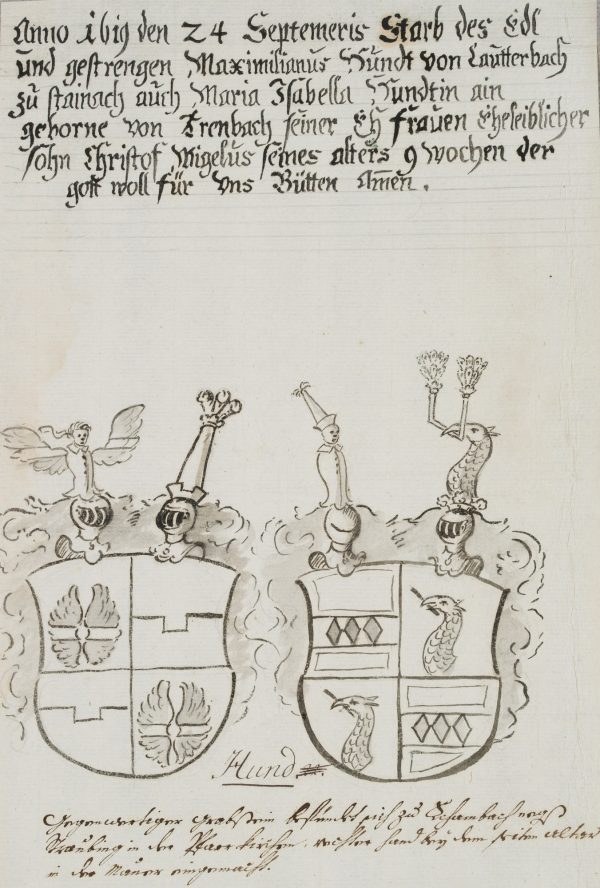 Anno 1619 den 24 Septemeris Starb des Edl
und gestrengen Maximilianus Hundt von Lautterbach
zu stainach auch Maria Isabella Hundtin ain
geborne von Trenbach seiner Eh frauen Eheleiblicher
sohn Christof Wigelus seines alters 9 wochen der
gott woll für vns Bütten Amen.
Hund
Gegenwertiger Grabstein befindet sich zu Schambach negst
Straubing in der Pfarrkirchen, rechter hand bey dem seiten altar
in der Mauer eingemacht.